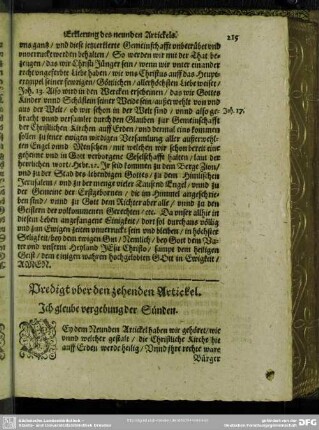 Erklerung des neundten Artickels. 215
uns gantz / und diese jetzterklerte Gemeinschafft unbetrübet und
unverruckt werden behalten / So werden wir mit der That be-
zeugen / das wir Christi Jünger sein / wenn wir unter einander
rechtungeferbte Liebe haben / wie uns Christus auff das Haupt-
exempel seiner sewrigen / Göttlichen / allerhöchsten Liebe weiset /
Joh. 13. Also wird in den Wercken erscheinen / das wir Gottes
Kinder unnd Schäfflein seiner Weide sein / außerwehlt von und
aus der Welt / ob wir schon in der Welt sind / unnd also ge-
bracht unnd versamlet durch den Glauben zur Gemeinschafft
der Christlichen Kirchen auff Erden / und dermal eins kommen
zur ewigen wirdigen Versamlung aller außerwehl-
ten Engel unnd Menschen / mit welchen wir schon bereit eine
und in Gott verborgene Gesellschafft halten / laut der
herrlichen wort / Hebr. 12. Ir seid kommen zu dem Berge Zion /
und zu der Stad des lebendigen Gottes / zu dem Himlischen
Jerusalem / und zu der menge vieler Tausend Engel / unnd zu
der Gemeine der Erstgebornen / die im Himmel angeschrie-
ben sind / unnd zu Gott dem Richter uber alle / unnd zu den
Geistern der volkommenen Gerechten / etc. Da unser allhie in
diesem Leben angefangene Einigkeit / dort sol durchaus völlig
und zun Ewigen zeiten unverruckt sein und bleiben / in höchster
Seligkeit / bey dem ewigen Gut / Nemlich / bey Gott dem Va-
ter und unserm Heyland JEsu Christo / sampt dem heiligen
Geist / dem einigen wahren hochgelobten GOtt in Ewigkeit /
AMEN.
Joh. 17.
Predigt uber den zehenden Artickel.
Ich gleube vergebung der Sünden.
BEy dem Neundten Artickel haben wir gehöret / wie
unnd welcher gestalt / die Christliche Kirche hie
auff Erden werde heilig / Unnd ihre rechte ware
Bürger